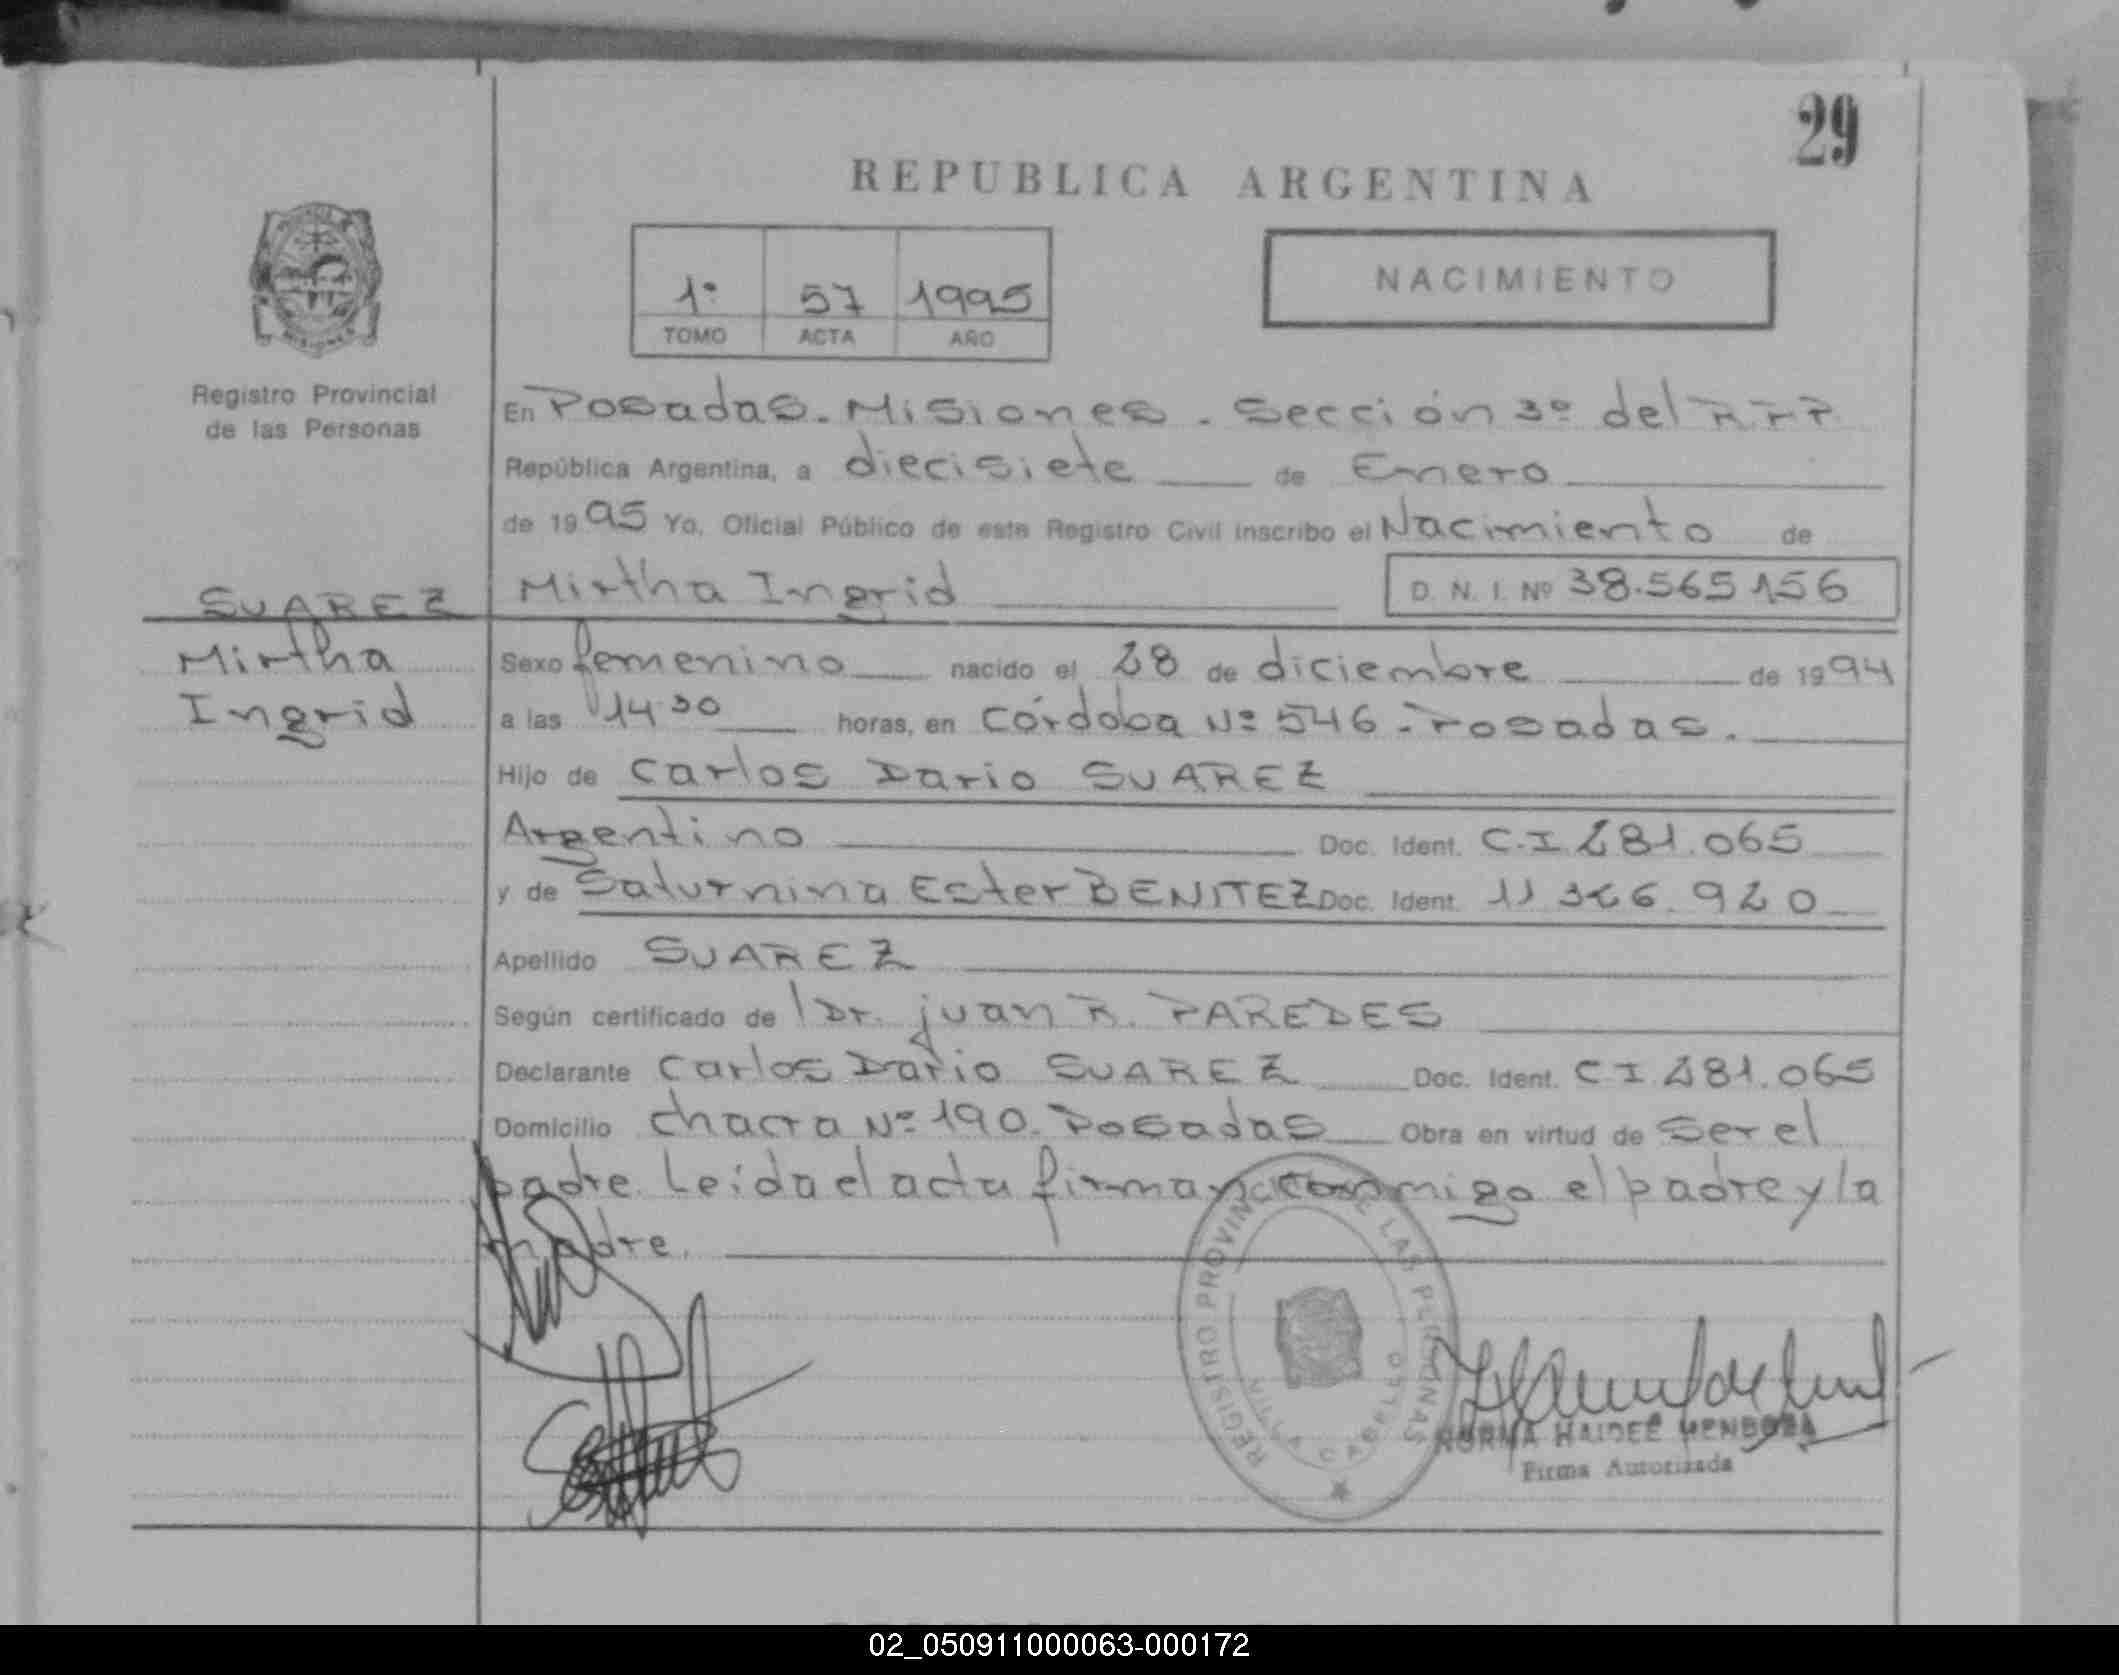 29
REPUBLICA ARGENTINA
1º 57 1995
TOMO ACTA AÑO
NACIMIENTO
MISIONES
Registro Provincial
de las Personas
En Posadas. Misiones. Sección 3º del R.P.P.
República Argentina, a diecisiete de Enero
de 1995 Yo, Oficial Público de este Registro Civil inscribo el Nacimiento de
SUAREZ Mirtha Ingrid D. N. I. Nº 38.565156
Mirtha
Ingrid
Sexo femenino nacido el 28 de diciembre de 1994
a las 14 30 horas, en Córdoba Nº 546 - Posadas.
Hijo de Carlos Dario SUAREZ
Argentino Doc. Ident. C.I 281.065
y de Saturnina Ester BENITEZ Doc. Ident. 11 326.920
Apellido SUAREZ
Según certificado de l Dr. juan R. PAREDES
Declarante Carlos Dario SUAREZ Doc. Ident. C I 281.065
Domicilio chacra Nº 190. Posadas Obra en virtud de ser el
padre. Leida el acta firman conmigo el padre y la
madre.
REGISTRO PROVINCIAL DE LAS PERSONAS
VILLA CABELLO
NORMA HAIDEÉ MENDOZA
Firma Autorizada
02_050911000063-000172